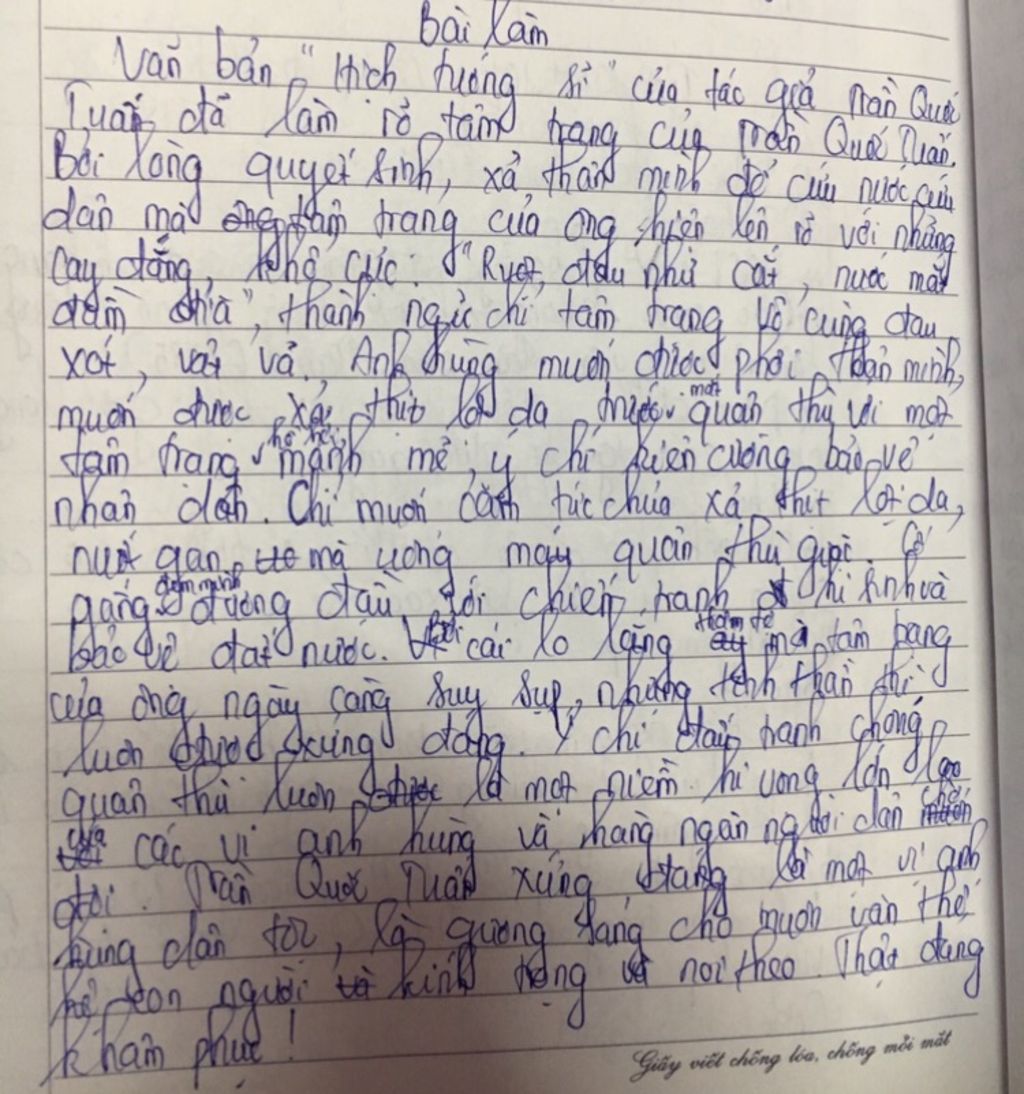 Bài làm
Văn bản "Hịch tướng sĩ" của tác giả Trần Quốc
Tuấn đã làm rõ tâm trạng của Trần Quốc Tuấn.
Bởi lòng quyết sinh, xả thân mình để cứu nước cứu
dân mà tâm trạng của ông hiện lên rõ với những
cay đắng, khổ cực: "Ruột đau như cắt, nước mắt
đầm đìa", thành ngữ chỉ tâm trạng vô cùng đau
xót, vất vả. Anh hùng muốn được phơi thân mình,
muốn được xả thịt lột da trước mắt quân thù với một
tâm trạng hồ hởi mạnh mẽ, ý chí kiên cường bảo vệ
nhân dân. Chỉ muốn căm tức chưa xả thịt lột da,
nuốt gan mà uống máu quân thù giặc. Cố
gắng đem mình đương đầu với chiến tranh hi sinh và
bảo vệ đất nước. Bởi cái lo lắng thảm tê mà tâm trạng
của ông ngày càng suy sụp, nhưng tinh thần thì
luôn xứng đáng. Ý chí đấu tranh chống
quân thù luôn là một niềm hi vọng lớn lao
của các vị anh hùng và hàng ngàn người dân chờ
đợi. Trần Quốc Tuấn xứng đáng là một vị anh
hùng dân tộc, là gương sáng cho muôn vàn thế
hệ con người kính trọng noi theo. Thật đáng
khâm phục!
Giấy viết chống lóa, chống mỏi mắt